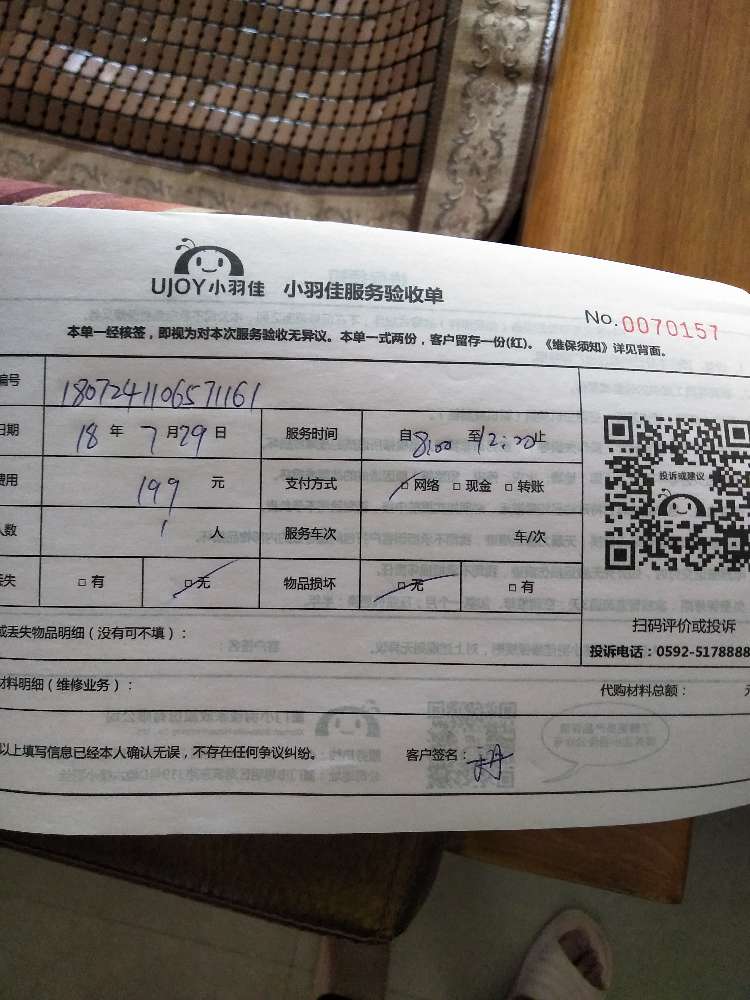 UJOY小羽佳 小羽佳服务验收单
No.0070157
本单一经核签，即视为对本次服务验收无异议。本单一式两份，客户留存一份(红)。《维保须知》详见背面。
编号 1807241106571161
日期 18 年 7 月 29 日 服务时间 自8:00 至12:00止
费用 199 元 支付方式 网络 现金 转账
人数 1 人 服务车次 车/次
丢失 有 无 物品损坏 无 有
投诉或建议
扫码评价或投诉
投诉电话：0592-5178888
或丢失物品明细（没有可不填）：
材料明细（维修业务）： 代购材料总额： 元
以上填写信息已经本人确认无误，不存在任何争议纠纷。 客户签名：